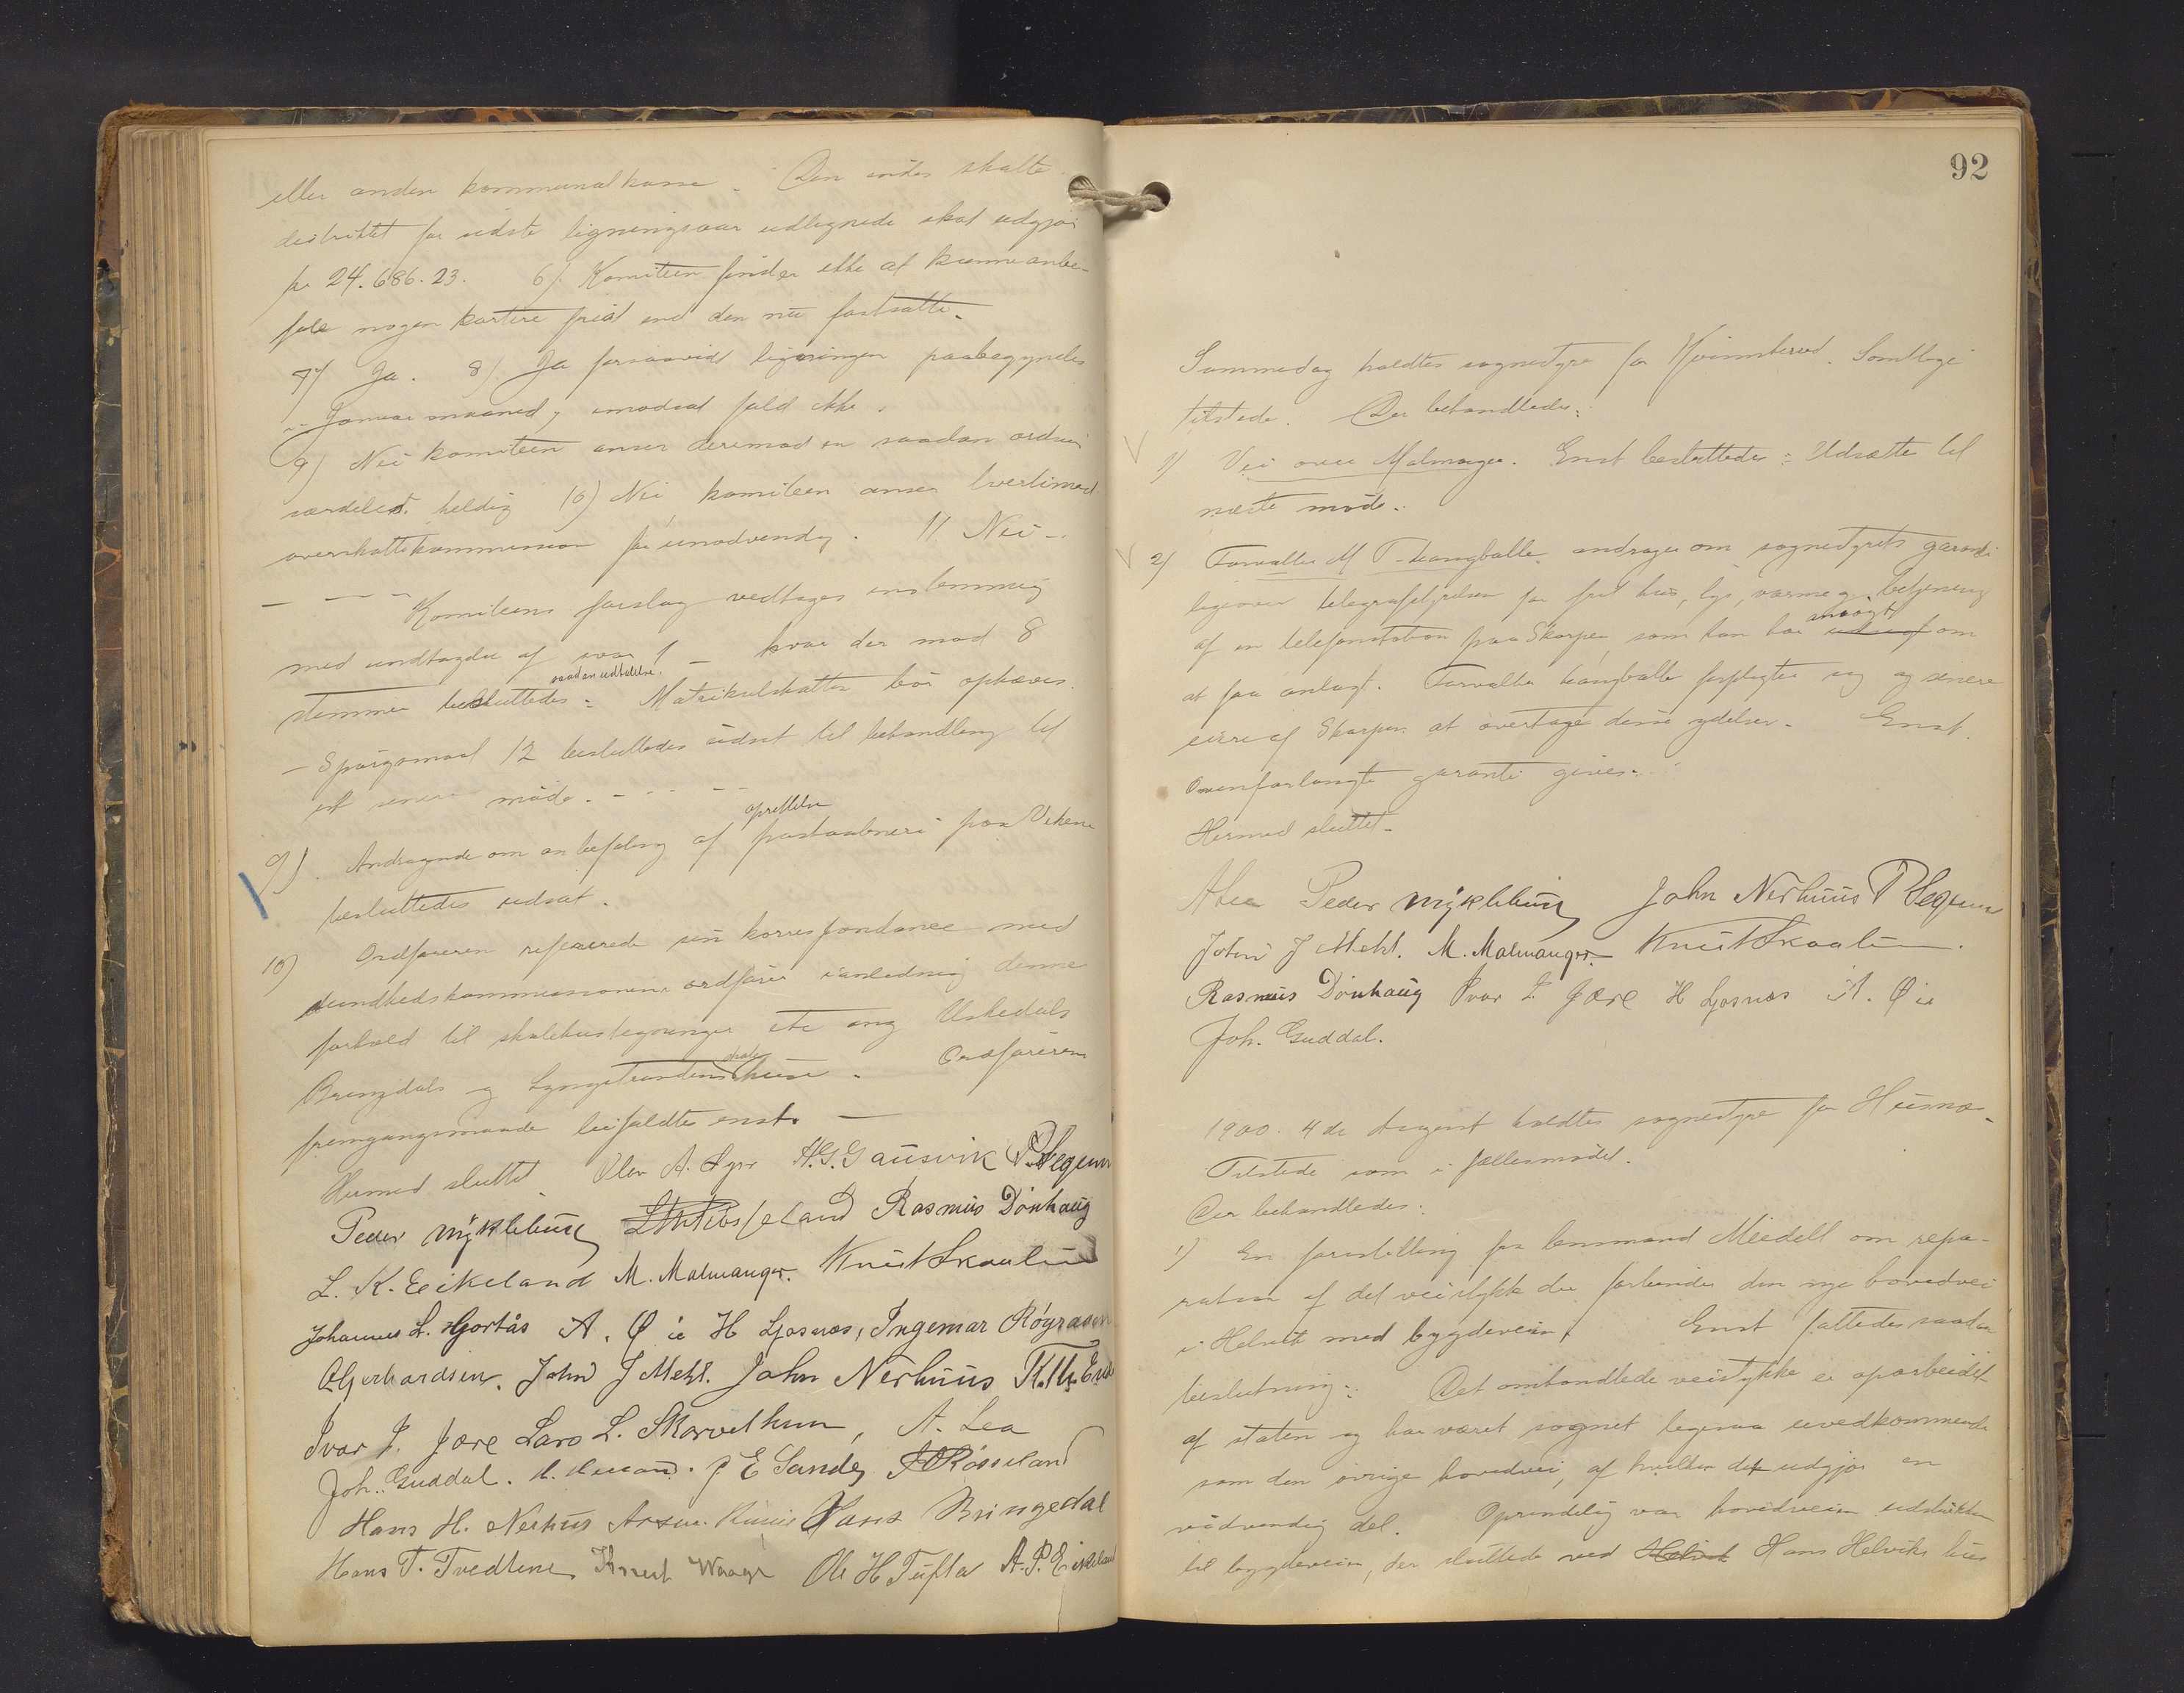 eller anden kommunalkasse. Den inden skatte
distriktet for sidste ligningsaar udlignede skat udgjør
kr 24.686.23. 6) Komiteen finder ikke at kunne anbe-
fale nogen kortere frist end den nu fastsatte.
7) Ja. 8) Ja forsaavidt ligningen paabegyndes
i Januar maaned, i modsat fald ikke.
9) Nei komiteen anser derimod en saadan ordning
særdeles heldig 10) Nei, komiteen anser tvertimod
overskattekommission for unødvendig. 11 Nei -
Komiteens forslag vedtages enstemmig
med undtagelse af svar 1 - hvor der mod 8
saadan udtalelse.
stemmer besluttedes: Matrikulskatten bør ophæves.
- Spørgsmaal 12 besluttedes udsat til behandling til
et senere møde. - - -
oprettelse
9). Andragende om anbefaling af postaabneri paa Vikene
besluttedes udsat.
10) Ordføreren refererede sin korrespondance med
sundhedskommissionens ordfører i anledning denne
forhold til skolehustegninger etc ang Uskedals
skole
Bringdals og Lyngstrandens huse. Ordførerens
fremgangsmaade bifaldtes enst. -
Hermed sluttet Olav A. Lyse H.G. Gausvik P. Segum
Peder Myklebust Rasmus Dønhaug
L. K. Eeikeland M. Malmanger. Knut Skaalun
Johannes L. Hjortås A. Øie H Ljosnes, Ingemar Røgrasen
Gjerhardsen. John J Mehl. John Nerhuus K. Th. End
Ivar J. Jære Lars L. Skorvethun, A. Lea
Joh. Guddal. J E Sande J Røsseland
Hans H. Nerhus Hans Bringedal
Hans T. Tvedtene Knut Waage Ole H Tufta A.P. Eikeland
92
Sammedag holdtes sognestyre for Kvinnherred. Samtlige
tilstede. Der behandledes:
1) Vei over Malmanger. Enst besluttedes: Udsætte til
næste møde.
2) Forvalter M T. Langballe andrager om sognestyrets garanti
ligeover telegrafstyrelsen for frit hus, lys, varme og betjening
ansøgt
af en telefonstation paa Skorpen, som han har om
at faa anlagt. Forvalter Langballe forpligter sig og senere
eiere af Skorpen at overtage disse ydelser. Enst.
Ovenforlangte garanti gives.
Hermed sluttet.
A Lea Peder Myklebust John Nerhuus P Segum
John J Mehl. M. Malmanger. Knut Skaalun.
Rasmus Dønhaug Ivar J. Jære H Ljosnes A. Øie
Joh. Guddal.
1900. 4de August holdtes sognestyre for Husnæs.
Tilstede som i fællesmødet.
Der behandledes:
1) En forestilling fra lensmand Meidell om repa-
ration af det veistykke der forbinder den nye hovedvei
i Helvik med bygdeveien. Enst fattedes saadan
beslutning: Det omhandlede veistykke er oparbeidet
af staten og har været sognet ligesaa uvedkommende
som den øvrige hovedvei, af hvilken det udgjør en
nødvendig del. Oprindelig var hovedveien udstukken
til bygdeveien, der sluttede ved Helvik Hans Helviks hus